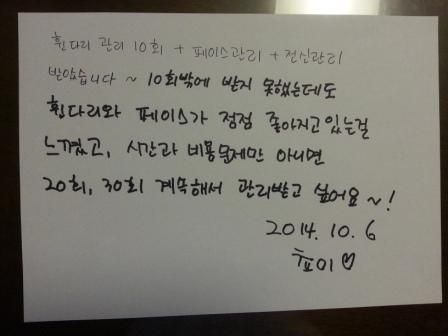 휜다리 관리 10회 + 페이스관리 + 전신관리
받았습니다 ~ 10회밖에 받지 못했는데도
휜다리와 페이스가 점점 좋아지고 있는걸
느꼈고, 시간과 비용문제만 아니면
20회, 30회 계속해서 관리받고 싶어요~!
2014. 10. 6